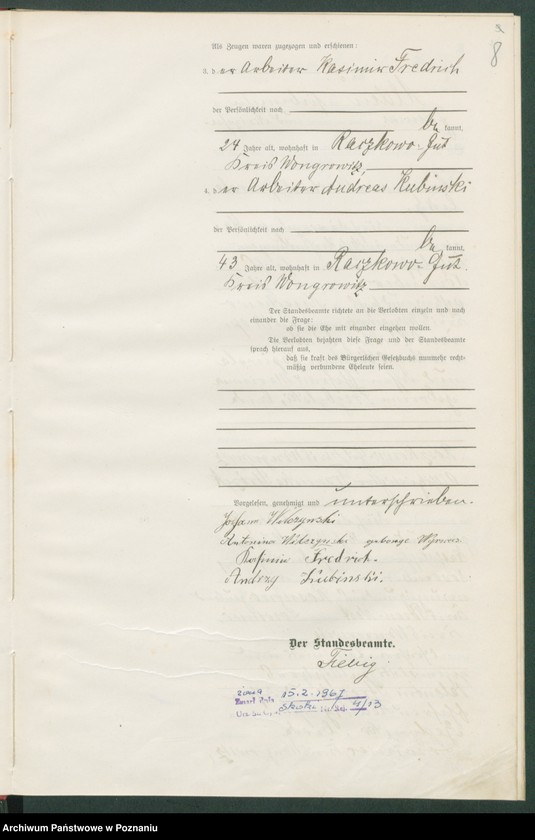 8
Als Zeugen waren zugezogen und erschienen:
3. der Arbeiter Kasimir Fredrich
der Persönlichkeit nach
be kannt,
24 Jahre alt, wohnhaft in Raczkowo-Gut
Kreis Wongrowitz,
4. der Arbeiter Andreas Kubinski
der Persönlichkeit nach
be kannt,
43 Jahre alt, wohnhaft in Raczkowo-Gut.
Kreis Wongrowitz
Der Standesbeamte richtete an die Verlobten einzeln und nach
einander die Frage:
ob sie die Ehe mit einander eingehen wollen.
Die Verlobten bejahten diese Frage und der Standesbeamte
sprach hierauf aus,
daß sie kraft des Bürgerlichen Gesetzbuchs nunmehr recht-
mäßig verbundene Eheleute seien.
Vorgelesen, genehmigt und unterschrieben.
Wilczynski
Antonina Wilczynski geborne
Kasimir Fredrich.
Andrzy Kubinski.
Der Standesbeamte.
Fiebig
15.2.1961
4/13
Archiwum Państwowe w Poznaniu